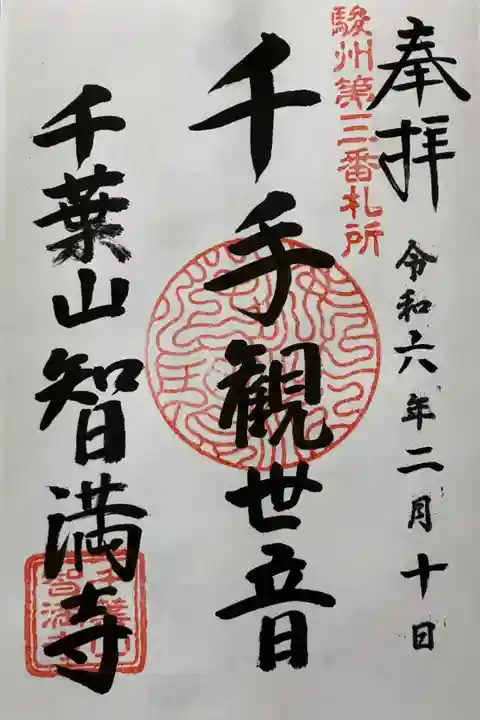 奉拝
令和六年二月十日
駿州第三番札所
千手観世音
千葉山智満寺
千葉山
智満寺